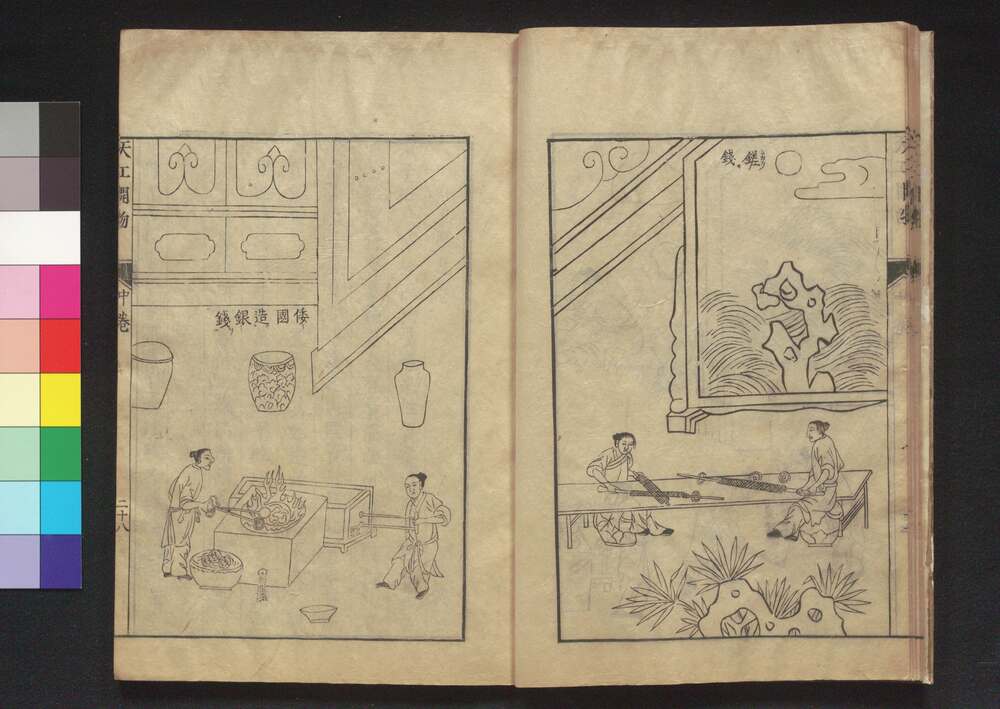 鎈錢
倭國造銀錢
天工開物
中卷
二十八